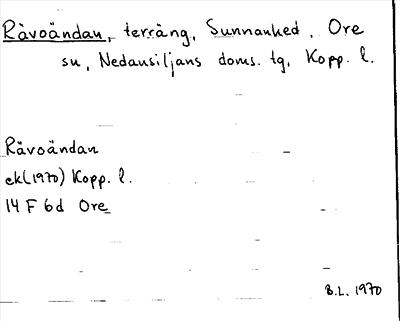 Råvoändan, terräng, Sunnanhed, Ore
sn, Nedansiljans doms. tg, Kopp. l.
Råvoändan
ek(1970) Kopp. l.
14 F 6d Ore
B.L. 1970